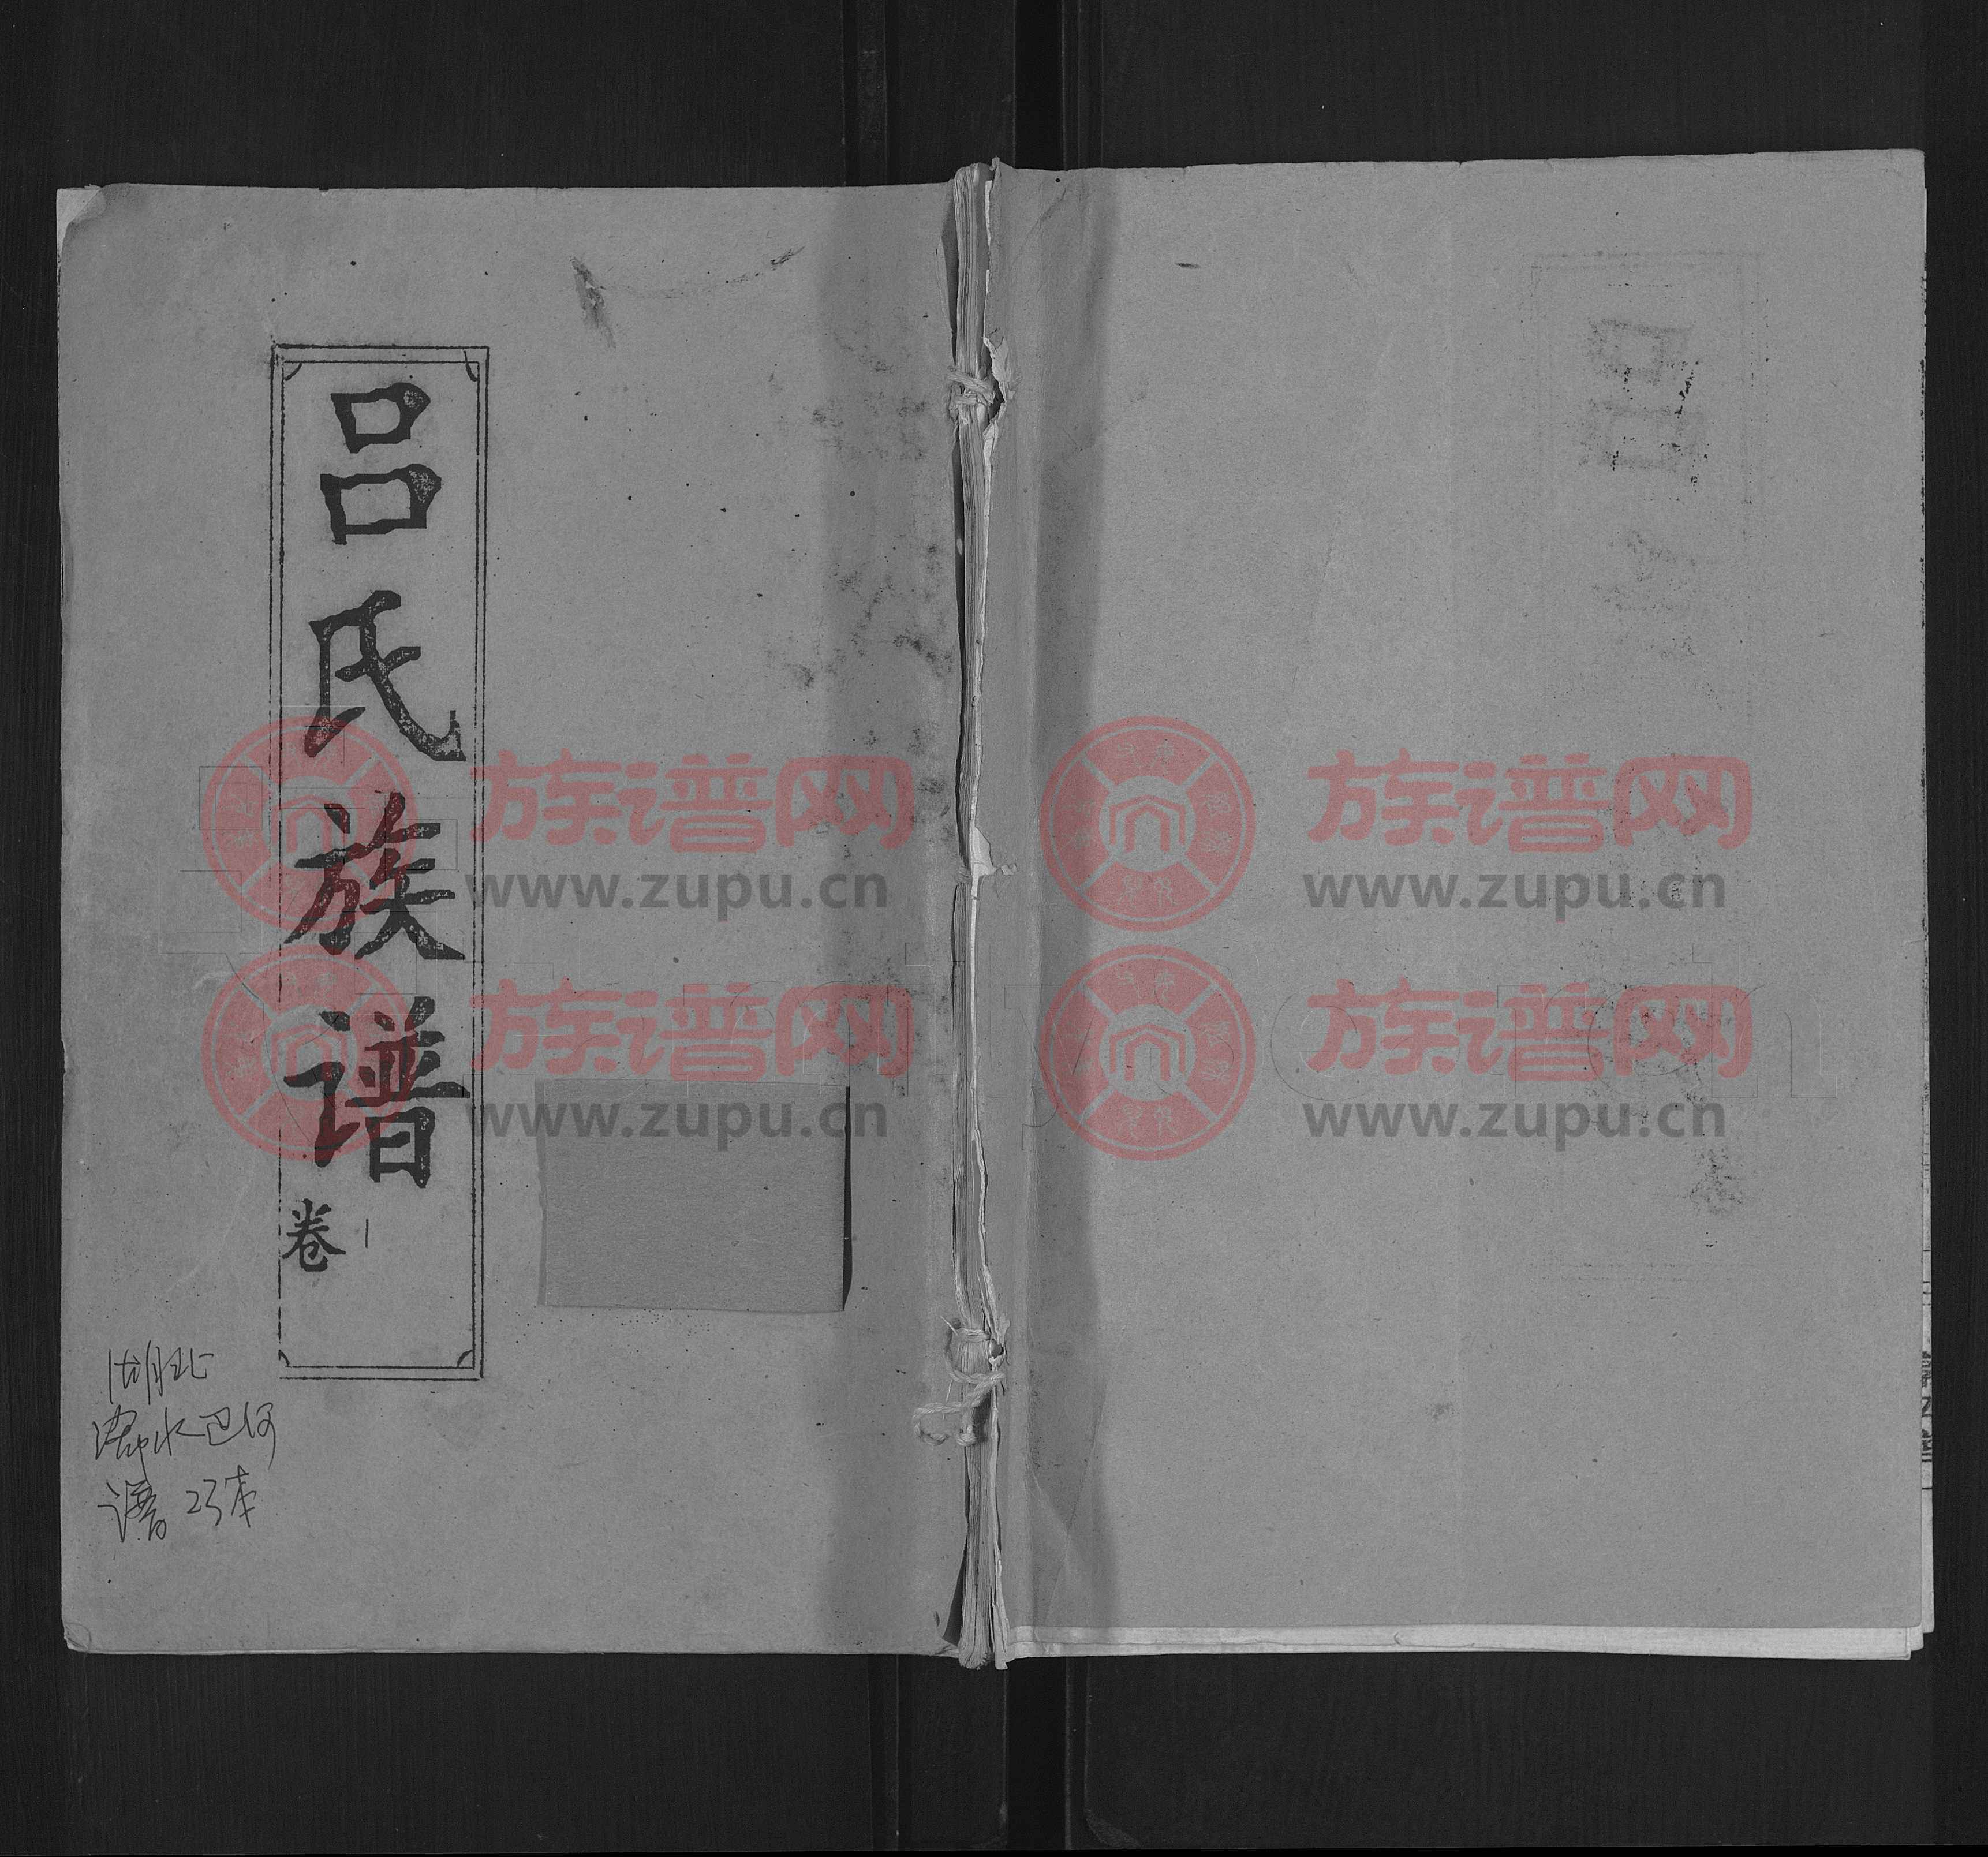 吕氏族谱
卷1
湖北
浠水巴河
谱23本
族谱网
www.zupu.cn
族谱网
www.zupu.cn
族谱网
www.zupu.cn
族谱网
www.zupu.cn